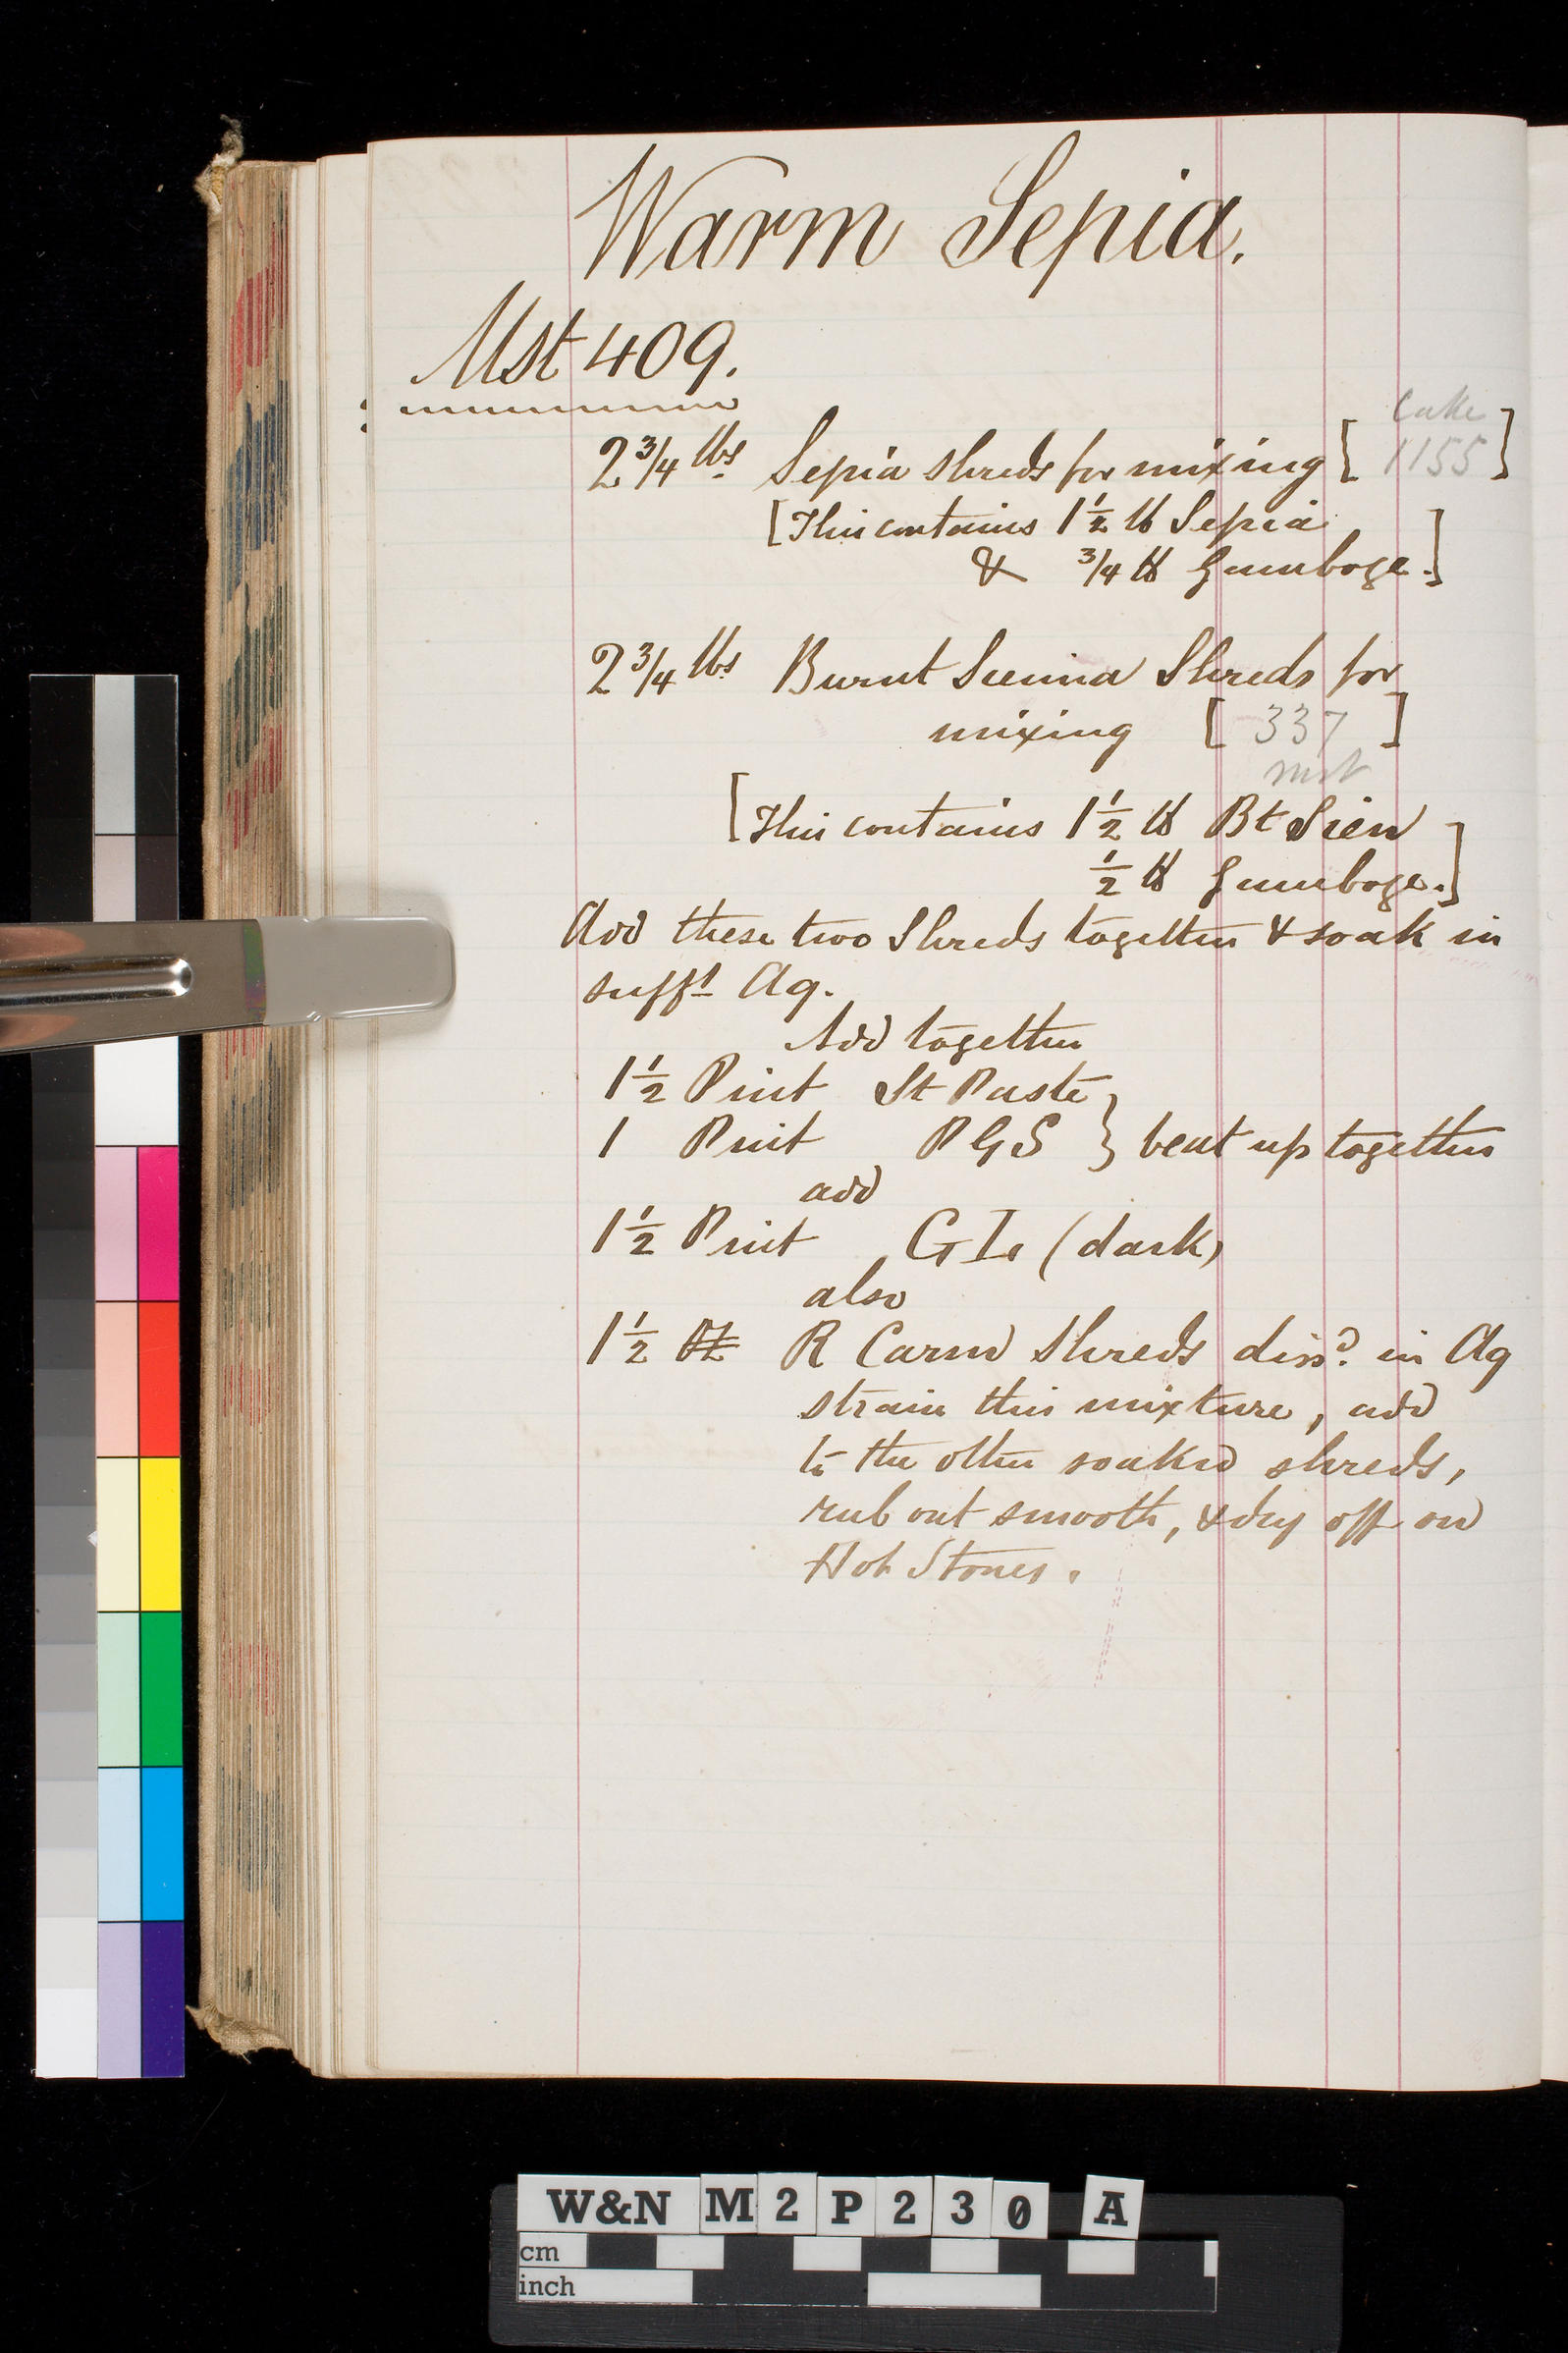 Warm Sepia.
Mst 409.
2 3/4 lbs Sepia shreds for mixing [ Cake 1155 ]
[This contains 1 1/2 lb Sepia
& 3/4 lb Gumboge.]
2 3/4 lbs Burnt Sienna Shreds for
mixing [ 337 mst ]
[This contains 1 1/2 lb Bt Sien
1/2 lb Gumboge.]
Add these two Shreds together & soak in
sufft Aq.
Add together
1 1/2 Pint St Paste
1 Pint PGS } beat up together
add
1 1/2 Pint GL (dark)
also
1 1/2 R Carm Shreds dissd. in Aq
strain this mixture, add
to the other soaked shreds,
rub out smooth, & dry off on
Hot Stones.
W&N M2P230 A
cm
inch